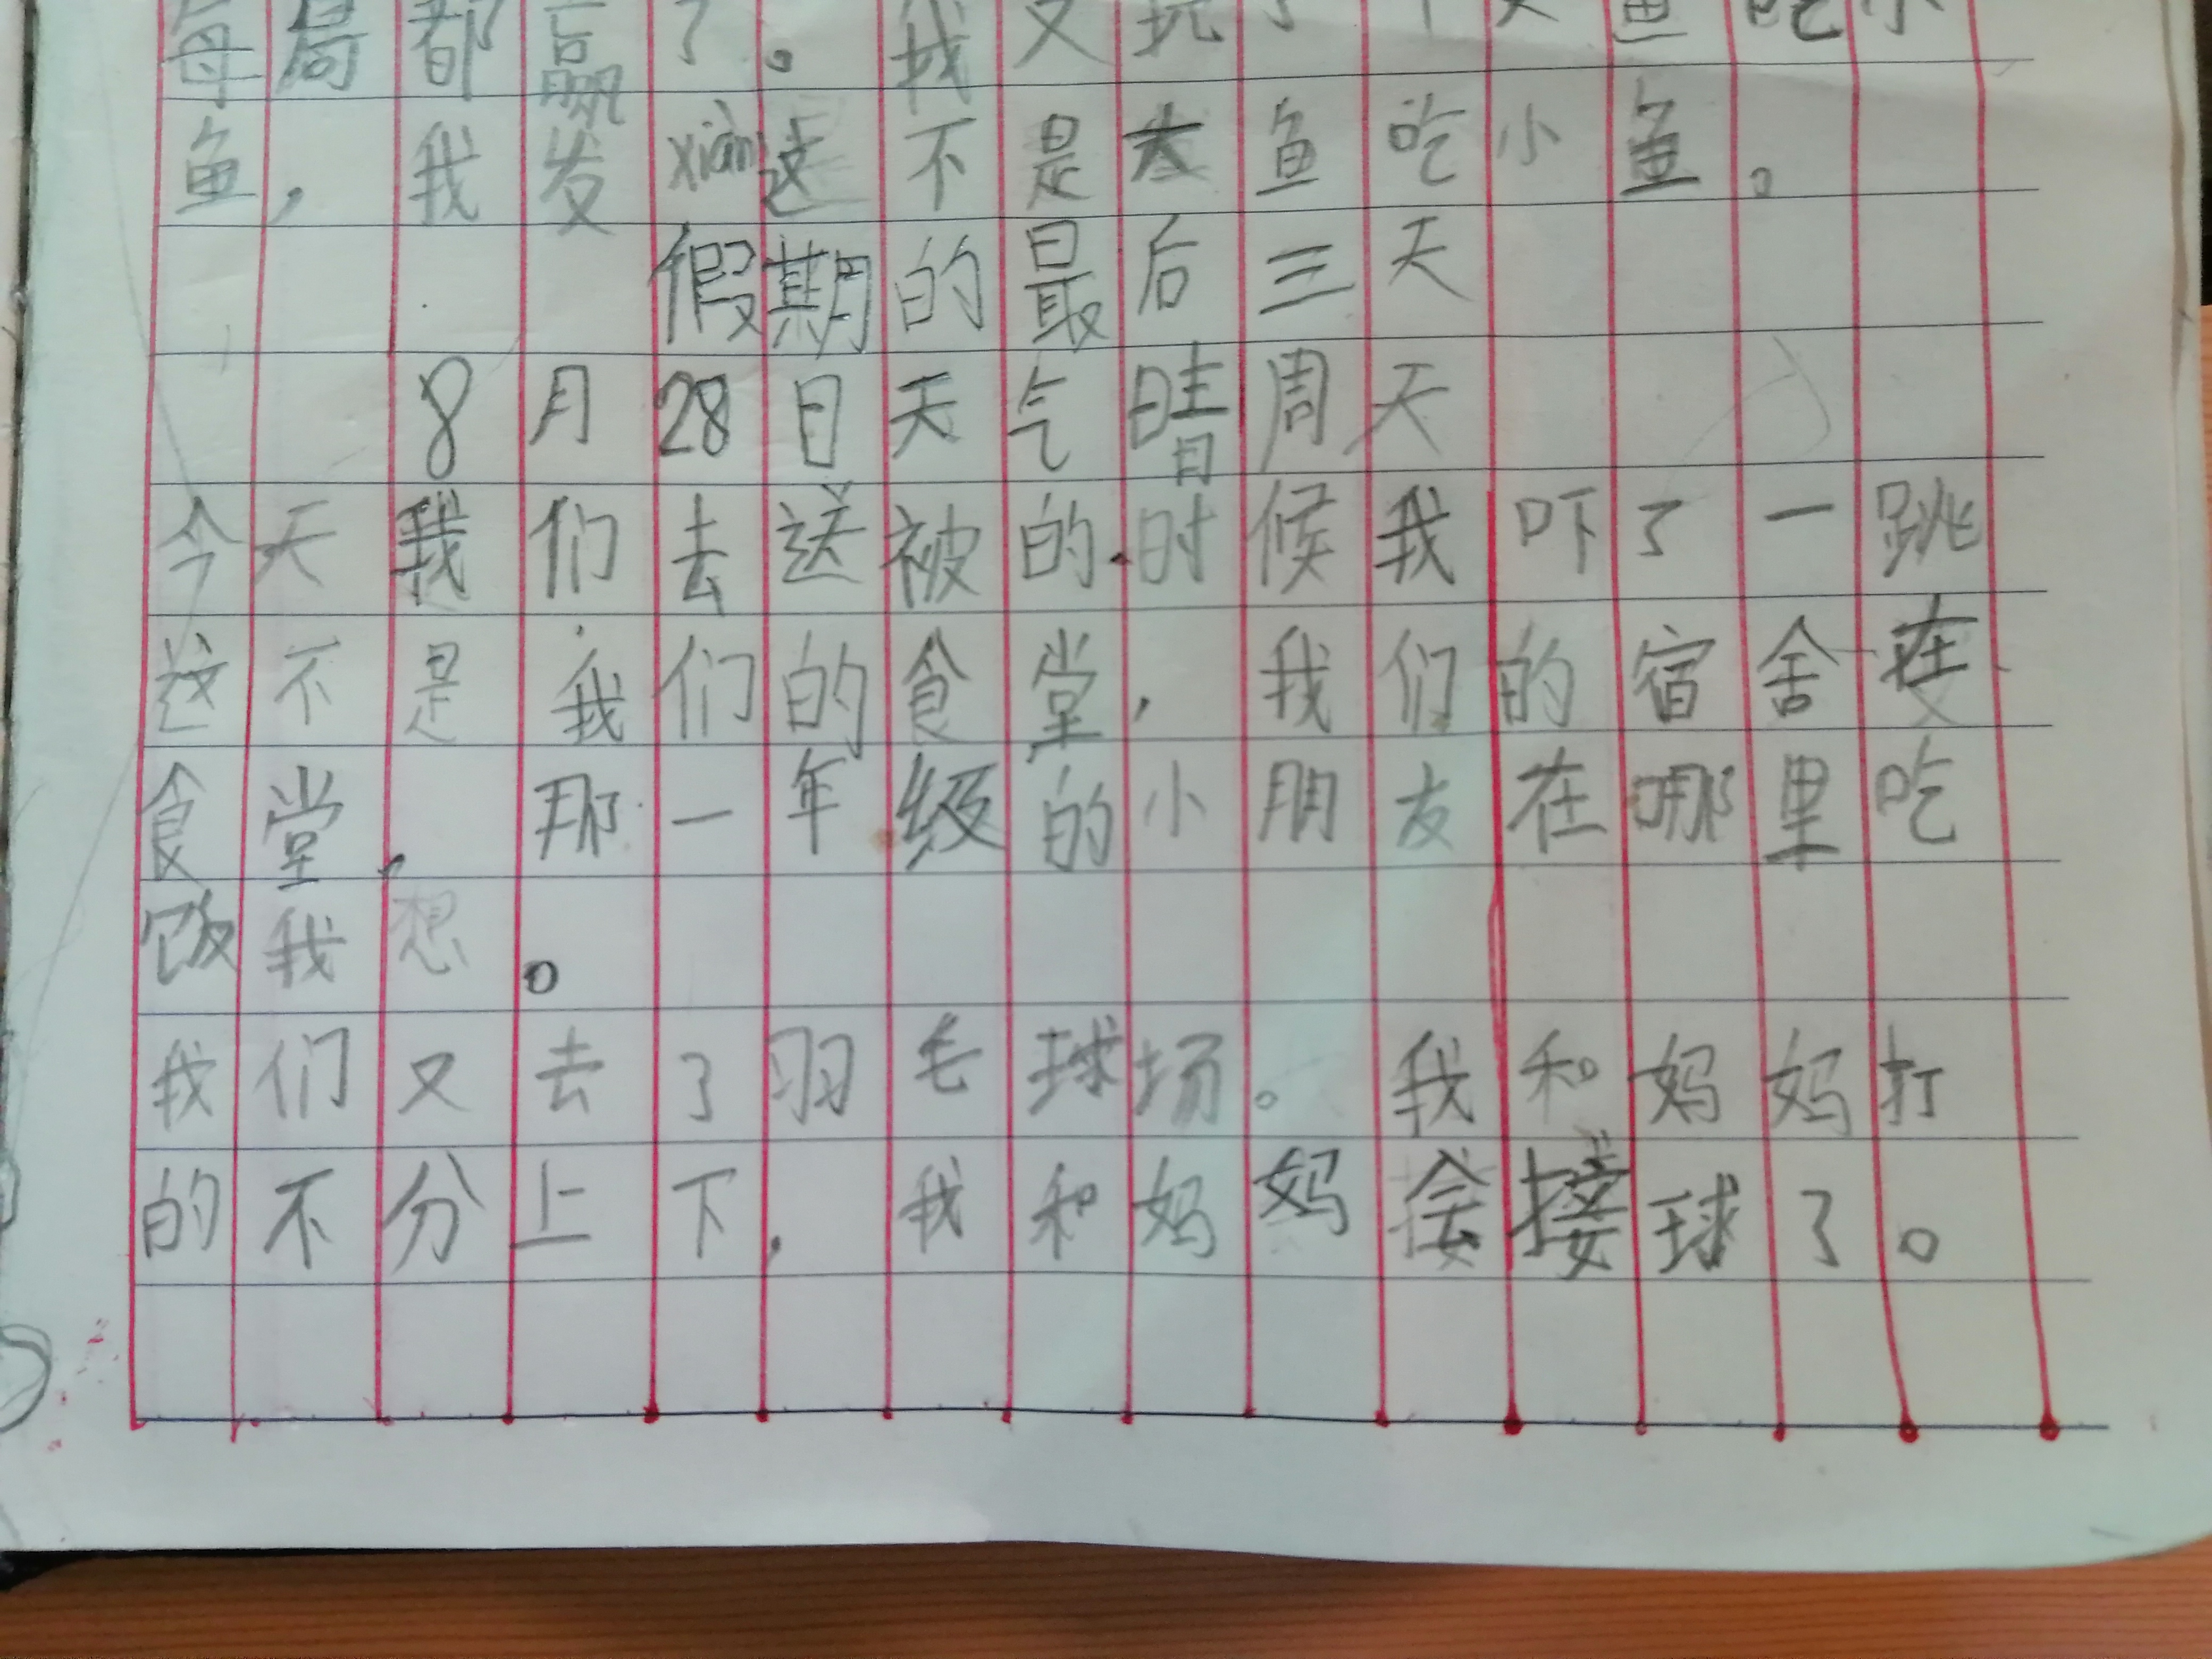 每局都赢了。我又玩了个大鱼吃小
鱼，我发xiàn这不是大鱼吃小鱼。
假期的最后三天
8月28日天气晴周天
今天我们去送被的时候我吓了一跳
这不是我们的食堂，我们的宿舍在
食堂，那一年级的小朋友在哪里吃
饭我想。
我们又去了羽毛球场。我和妈妈打
的不分上下，我和妈妈会接球了。